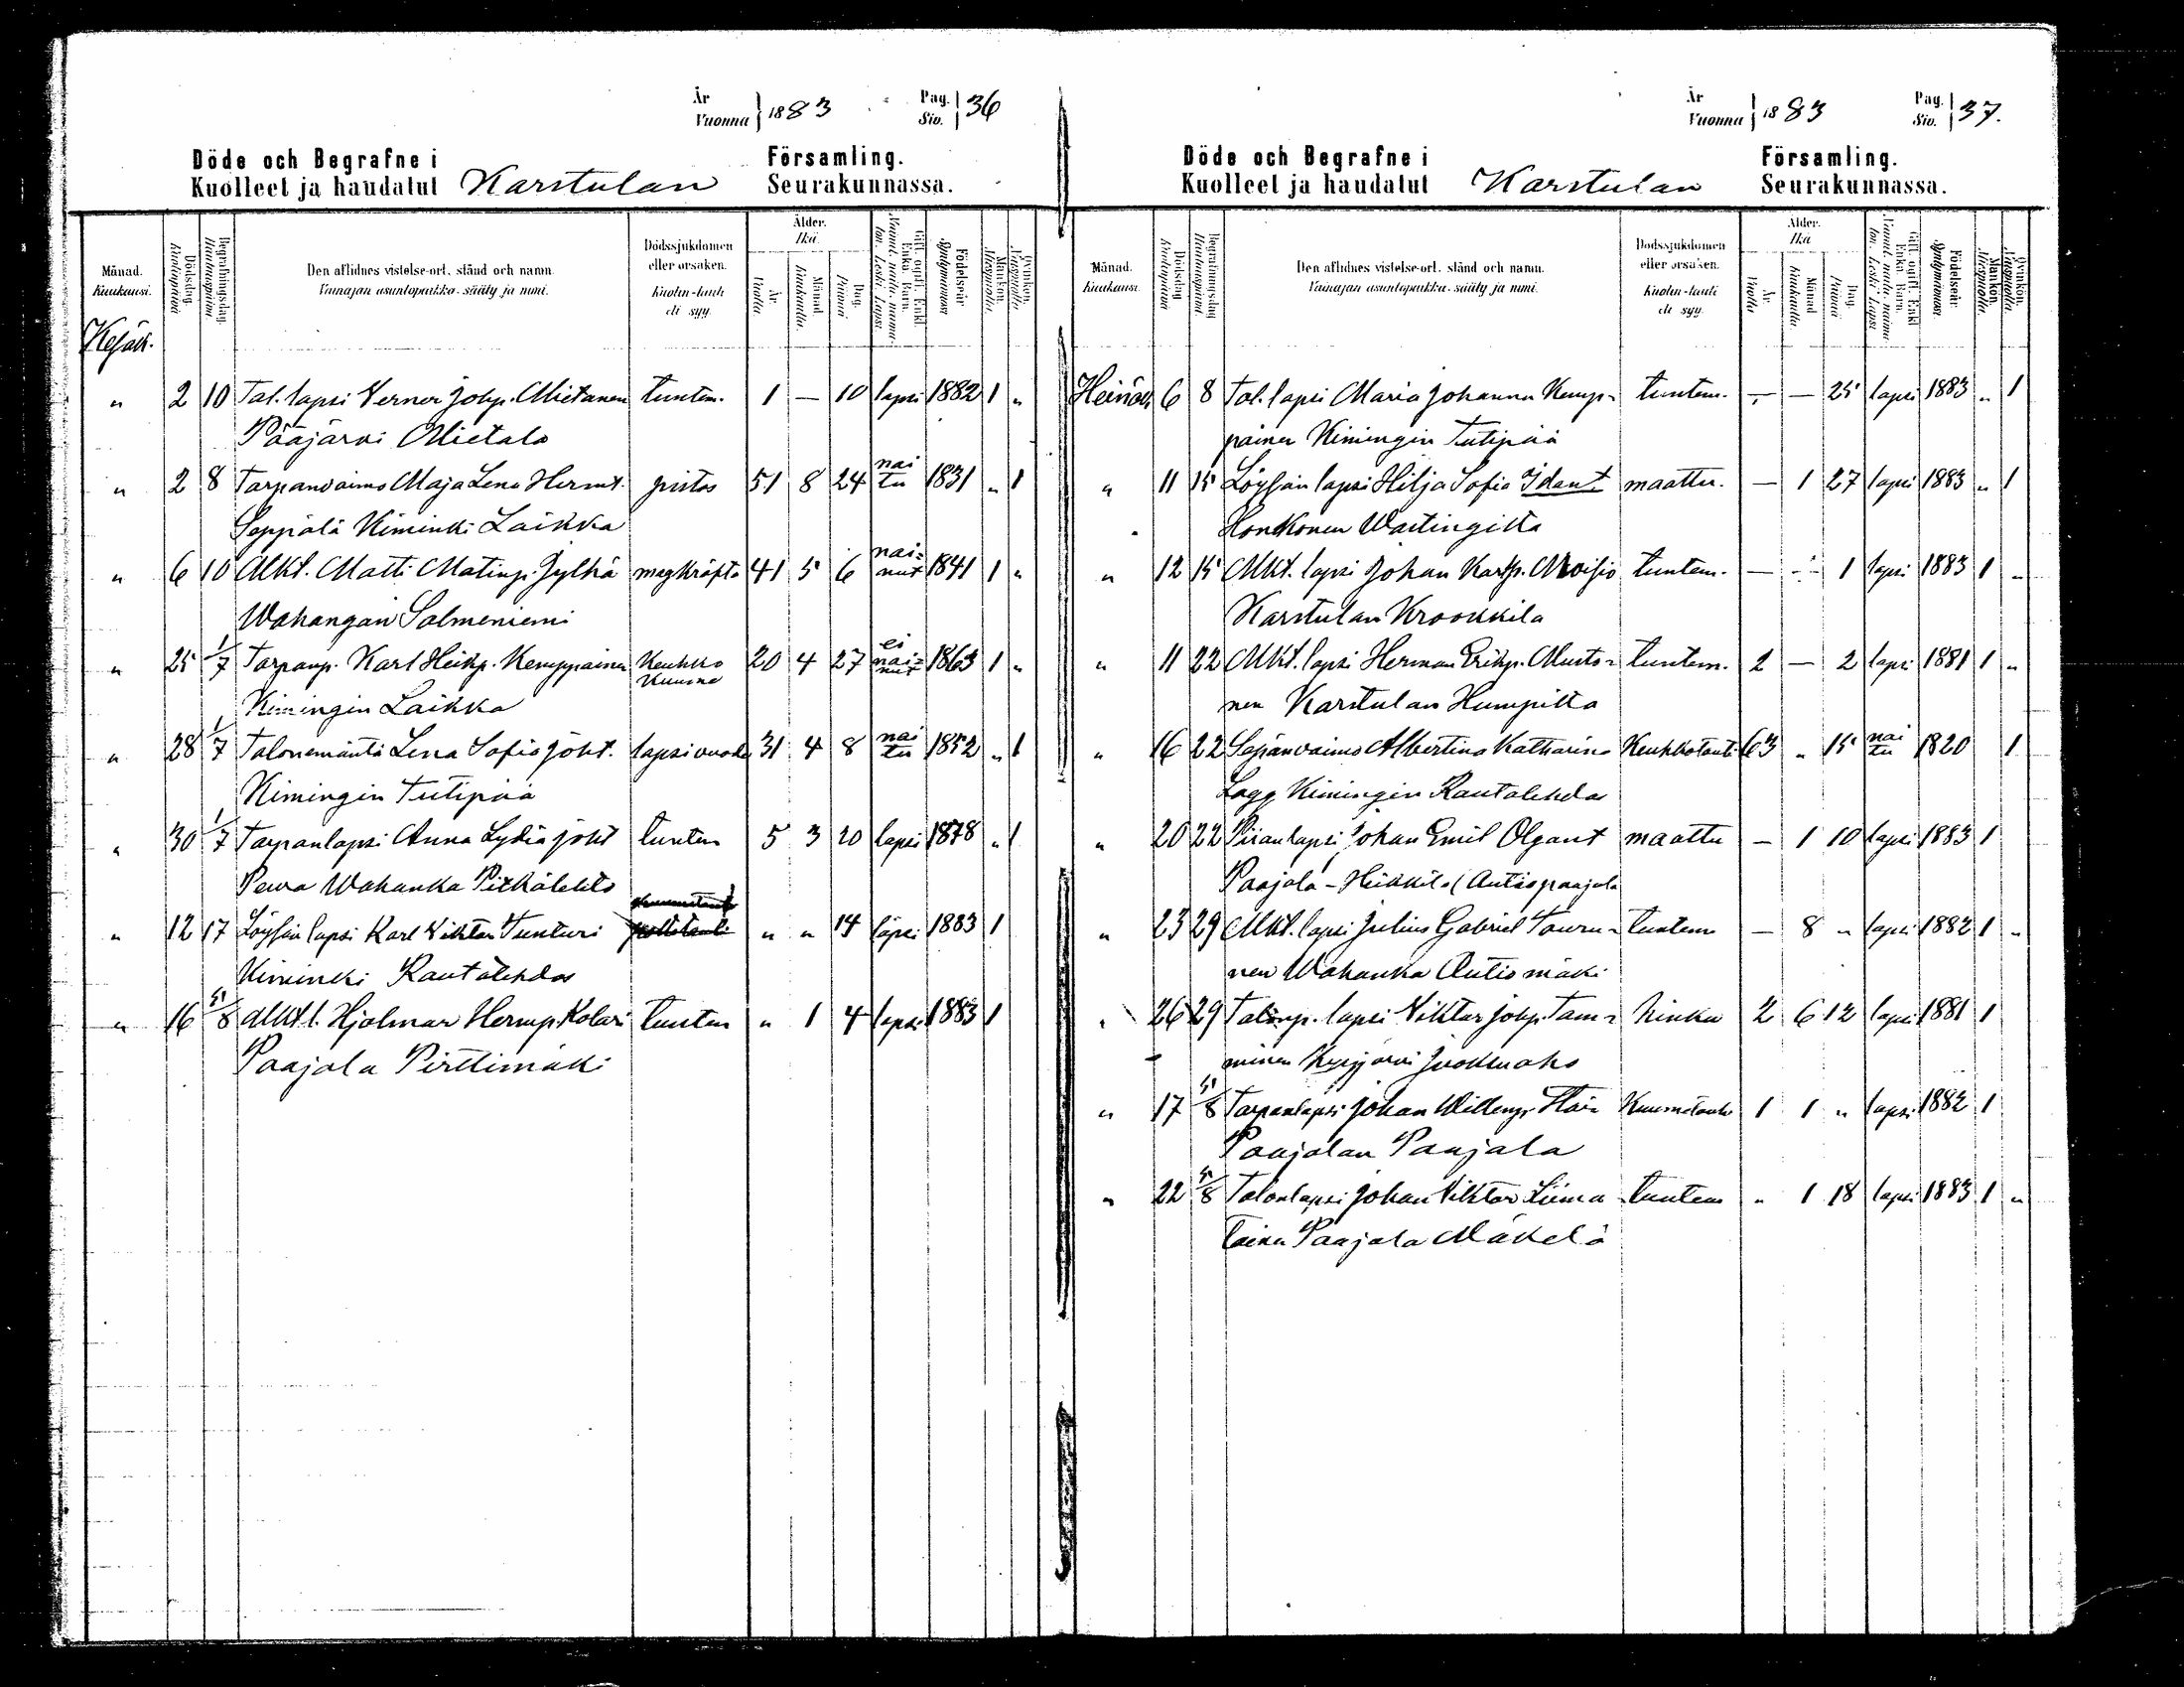 År
Vuonna } 1883
Pag.
Siv. | 36
Döde och Begrafne i Församling.
Kuolleet ja haudatut Karstulan Seurakunnassa.
Månad.
Kuukausi.
Dödsdag.
Kuolinpäivä
Begrafningsdag.
Hautauspäivä
Den aflidnes vistelse-ort, stånd och namn.
Vainajan asuntopaikka, sääty ja nimi.
Dödssjukdomen
eller orsaken.
Kuolin-tauti
eli syy.
Ålder.
Ikä.
År.
Vuotta
Månad.
Kuukautta
Dag.
Päivää
Gift, ogift, Enkl.
Enka, Barn.
Födelseår.
Syntymävuosi
Mankön.
Miespuolta.
Qvinkön.
Vaimopuolta.
Kesäk.
" 2 10 Tal. lapsi Verner Johp. Mietanen tuntem. 1 — 10 lapsi 1882 1 "
Pääjärvi Mietala
" 2 8 Tarpanvaimo Maja Lena Hermt. pistos 51 8 24 nai tu 1831 " 1
Seppälä Kiminki Laikka
" 6 10 Mkt. Matti Matinp. Jylhä magkräfta 41 5 6 nai= nut 1841 1 "
Wahangan Salmeniemi
" 25 1/7 Tarpanp. Karl Heikp. Kemppainen Keuhko kuume 20 4 27 ei nai= nut 1863 1 "
Kimingin Laikka
" 28 1/7 Talonemäntä Lena Sofia Joht. lapsivuode 31 4 8 nai tu 1852 " 1
Kimingin Tutipää
" 30 1/7 Tarpanlapsi Anna Lydia Joht tuntem 5 3 20 lapsi 1878 " 1
Perva Wahanka Pitkälehto
" 12 17 Löysän lapsi Karl Viktor Tunturi " " 14 lapsi 1883 1
Kiminki Rautalehdos
" 16 5/8 Mkt l. Hjalmar Hermp. Kolari tuntem " 1 4 lapsi 1883 1
Paajala Pirttimäki
År
Vuonna } 1883
Pag.
Siv. | 37.
Döde och Begrafne i Församling.
Kuolleet ja haudatut Karstulan Seurakunnassa.
Månad.
Kuukausi.
Dödsdag.
Kuolinpäivä
Begrafningsdag
Hautauspäivä
Den aflidnes vistelse-ort, stånd och namn.
Vainajan asuntopaikka, sääty ja nimi.
Dödssjukdomen
eller orsaken.
Kuolin-tauti
eli syy.
Ålder.
Ikä
År.
Vuotta
Månad
Kuukautta
Dag.
Päivää
Gift, ogift, Enkl
Enka, Barn.
Födelseår.
Syntymävuosi.
Mankön.
Miespuolta.
Qvinkön.
Vaimopuolta.
Heinäk. 6 8 Tal. lapsi Maria Johanna Kemp= tuntem. — — 25 lapsi 1883 " 1
painen Kimingin Tutipää
" 11 15 Löysän lapsi Hilja Sofia Idant maattu. — 1 27 lapsi 1883 " 1
Honkonen Wastingilta
" 12 15 Mkt. lapsi Johan Karlp. Moisio tuntem. — — 1 lapsi 1883 1 "
Karstulan Krookkila
" 11 22 Mkt. lapsi Herman Erikp. Musto= tuntem. 2 — 2 lapsi 1881 1 "
nen Karstulan Humpilta
" 16 22 Sepänvaimo Albertina Katharina Keuhkotauti 63 " 15 nai tu 1820 1
Lagg Kimingin Rautalehdos
" 20 22 Piianlapsi Johan Emil Olgant maattu — 1 10 lapsi 1883 1
Paajala - Heikkilä (Autiopaajala
" 23 29 Mkt. lapsi Julius Gabriel Touru= tuntem — 8 " lapsi 1882 1 "
nen Wahanka Autiomäki
" 26 29 Talonp. lapsi Viktor Johp. Tam= hinku 2 6 12 lapsi 1881 1
minen Kyyjärvi Juokuaho
" 17 5/8 Tarpanlapsi Johan Willemp. Kuumetauti 1 1 " lapsi 1882 1
Paajalan Paajala
" 22 5/8 Talonlapsi Johan Viktor Liima tuntem " 1 18 lapsi 1883 1 "
tainen Paajala Mäkelä